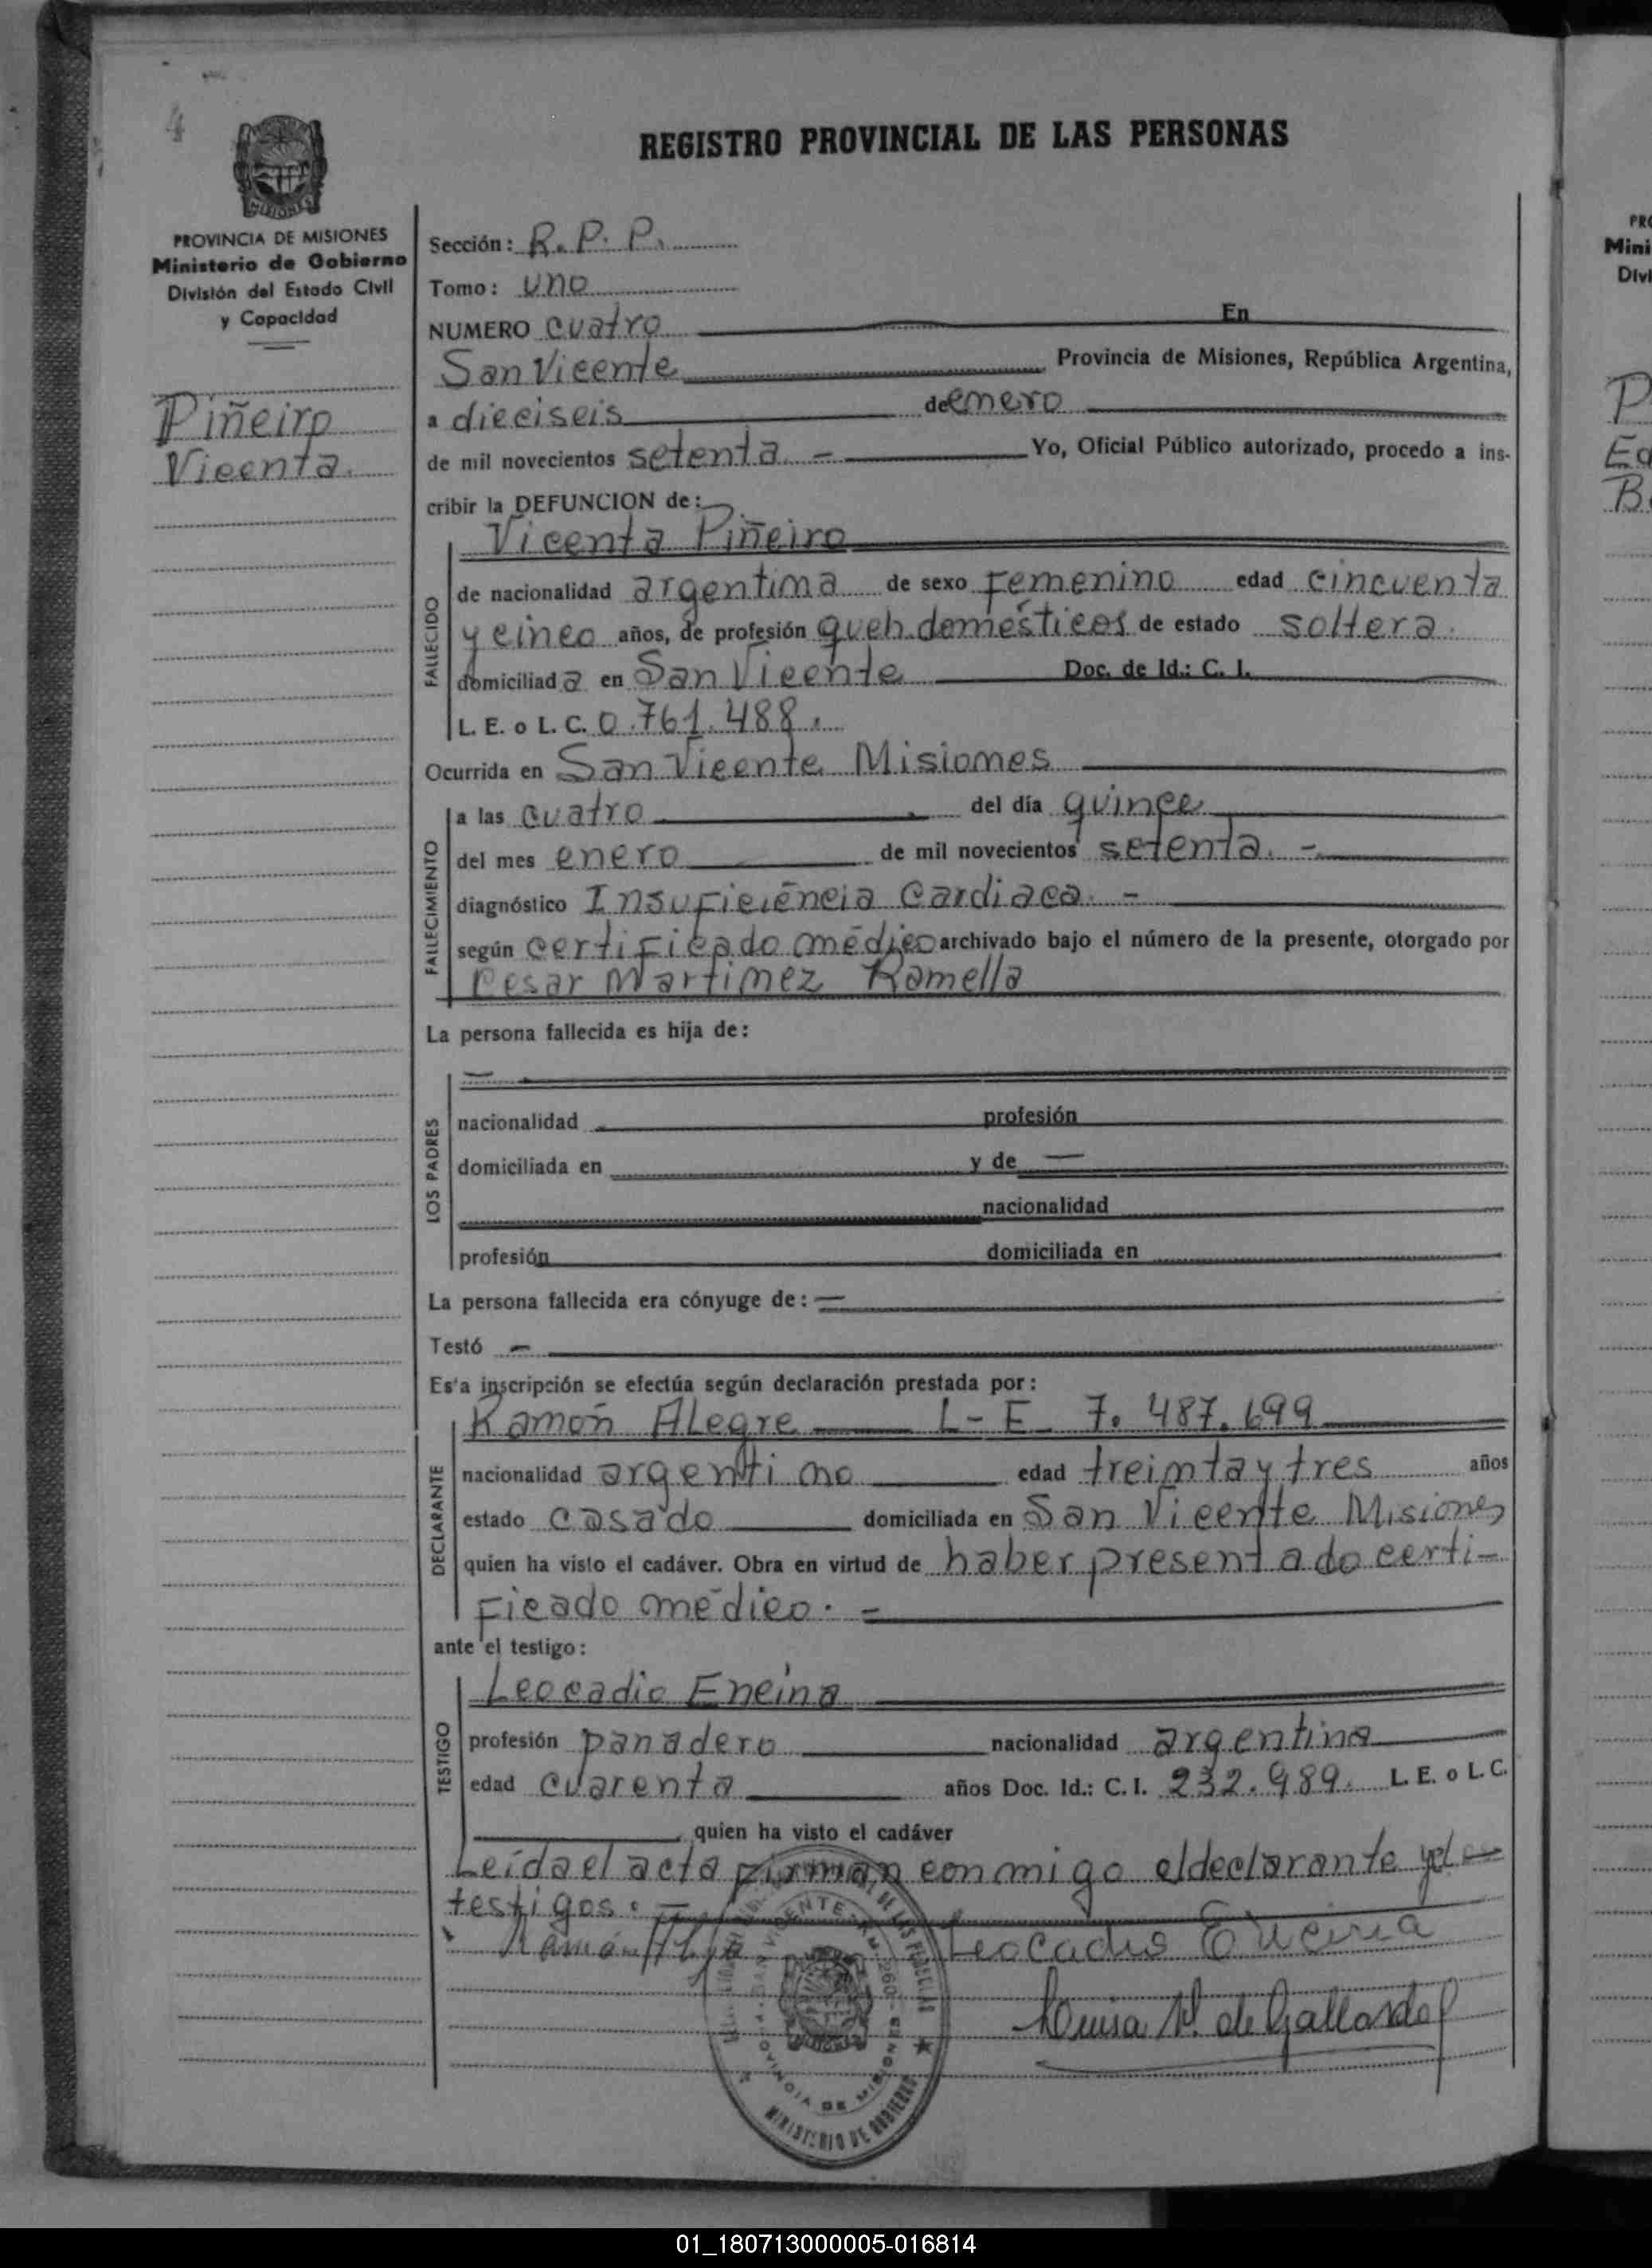 4
REGISTRO PROVINCIAL DE LAS PERSONAS
MISIONES
PROVINCIA DE MISIONES
Ministerio de Gobierno
División del Estado Civil
y Capacidad
Piñeiro
Vicenta.
Sección: R. P. P.
Tomo: uno
NUMERO cuatro En
San Vicente Provincia de Misiones, República Argentina,
a dieciseis de enero
de mil novecientos setenta. - Yo, Oficial Público autorizado, procedo a ins-
cribir la DEFUNCION de:
Vicenta Piñeiro
FALLECIDO
de nacionalidad argentina de sexo Femenino edad cincuenta
y cinco años, de profesión queh. domésticos de estado soltera.
domiciliada en San Vicente Doc. de Id.: C. I.
L. E. o L. C. 0.761.488.
Ocurrida en San Vicente Misiones
FALLECIMIENTO
a las cuatro del día quince
del mes enero de mil novecientos setenta. -
diagnóstico Insuficiéncia Cardiaca. -
según certificado médico archivado bajo el número de la presente, otorgado por
Cesar Martinez Ramella
La persona fallecida es hija de:
LOS PADRES
nacionalidad profesión
domiciliada en y de
nacionalidad
profesión domiciliada en
La persona fallecida era cónyuge de:
Testó
Es'a inscripción se efectúa según declaración prestada por:
Ramón Alegre L-E- 7.487.699
DECLARANTE
nacionalidad argentino edad treinta y tres años
estado casado domiciliada en San Vicente Misiones
quien ha visto el cadáver. Obra en virtud de haber presentado certi-
ficado médico. =
ante el testigo:
Leocadio Encina
TESTIGO
profesión panadero nacionalidad argentina
edad cuarenta años Doc. Id.: C. I. 232.989. L. E. o L. C.
quien ha visto el cadáver
Leída el acta firman conmigo el declarante y
testigos. =
Ramón Leocadio Encina
Luisa de Gallardo
PROVINCIA DE MISIONES
MINISTERIO DE GOBIERNO
PRO
Mini
Divi
P
Ed
B
01_180713000005-016814